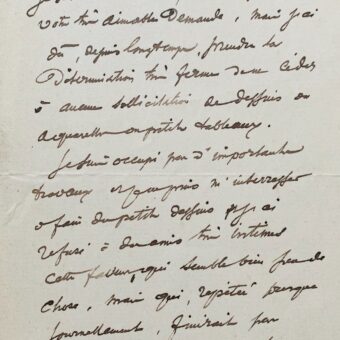 votre très aimable Demande, mais j'ai
dû, depuis longtemps, prendre la
Détermination très ferme de ne céder
à aucune sollicitation de dessins ou
acquarelles ou petits tableaux.
Je suis occupé par d'importants
travaux et je ne puis m'interresser
à faire de petits dessins et j'ai
refusé à des amis très intimes
cette faveur, qui semble bien peu de
chose, mais qui, repétée presque
journellement, finirait par